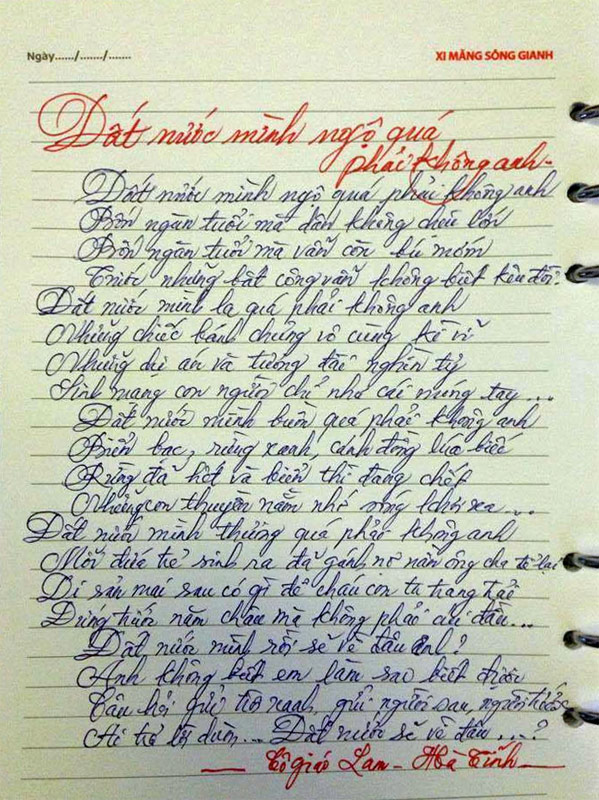 Ngày....../......./....... XI MĂNG SÔNG GIANH
Đất nước mình ngộ quá
phải không anh
Đất nước mình ngộ quá phải không anh
Bốn ngàn tuổi mà dân không chịu lớn
Bốn ngàn tuổi mà vẫn còn bú mớm
Trước những bất công vẫn không biết kêu đòi?
Đất nước mình lạ quá phải không anh
Những chiếc bánh chưng vô cùng kì vĩ
Những dự án và tượng đài nghìn tỷ
Sinh mạng con người chỉ như cái móng tay...
Đất nước mình buồn quá phải không anh
Biển bạc, rừng xanh, cánh đồng lúa biếc
Rừng đã hết và biển thì đang chết
Những con thuyền nằm nhớ sóng khơi xa...
Đất nước mình thương quá phải không anh
Mỗi đứa trẻ sinh ra đã gánh nợ nần ông cha để lại
Di sản mai sau có gì để cháu con ta trang trải
Đứng trước năm châu mà không phải cúi đầu...
Đất nước mình rồi sẽ về đâu anh?
Anh không biết em làm sao biết được
Câu hỏi gửi trời xanh, gửi người sau, người trước
Ai trả lời dùm... Đất nước sẽ về đâu...?
Cô giáo Lam - Hà Tĩnh